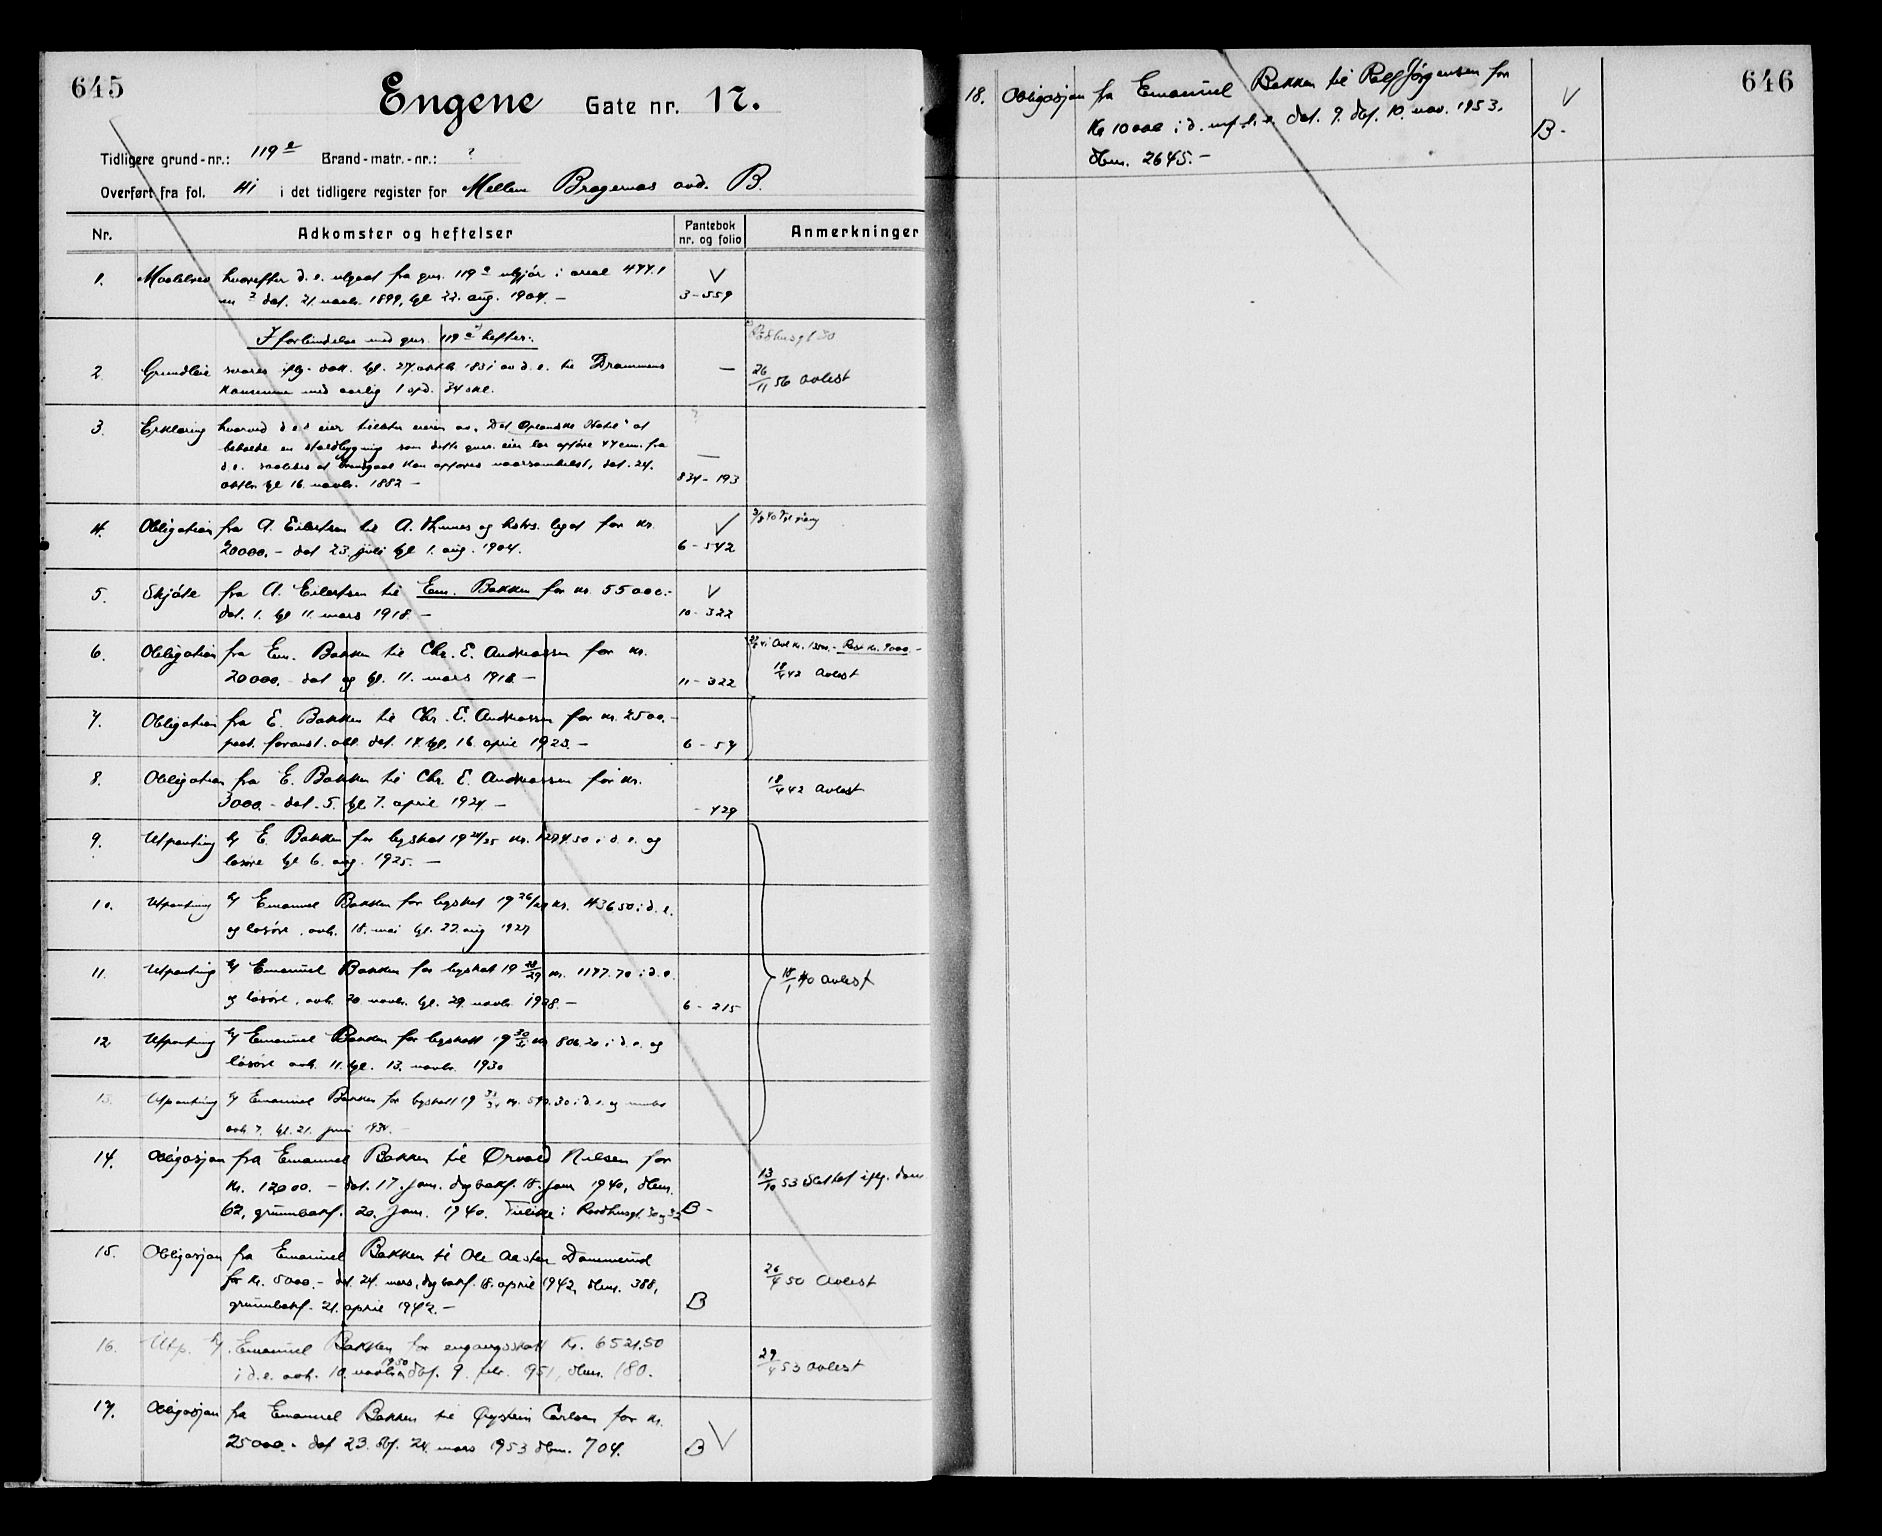 645
Engene Gate nr. 17.
Tidligere grund-nr.: 119 e Brand-matr.-nr.: ?
Overført fra fol. 41 i det tidligere register for Mellem Bragernæs avd. B.
Nr. Adkomster og heftelser Pantebok nr. og folio Anmerkninger
1. Maalebrev hvorefter d. e. utgaat fra gnr. 119 a utgjør i areal 477.1
m 2 dat. 21 novbr. 1899, tgl 22. aug. 1904. — 3-559
I forbindelse med gnr. 119 a hefter:
2 Grundleie svares iflg. dok. tgl. 27. oktbr 1831 av d. e. til Drammens — 26/11 56 avlest
Kommune med aarlig 1 spd. 34 skl.
3. Erklæring hvorved d. e.s eier tillater eieren av "Det Oplandske Hotel" at
beholde en staldbygning som dette gnr. eier lar opføre 44 cm. fra
d. e. saaledes at brandgavl kan opføres naarsomhelst, dat. 24.
oktbr tgl 16. novbr. 1882 — 834-193
4. Obligation fra A. Eilertsen til A. Kiønes og hstrs. legat for kr.
20000.- dat 23. juli tgl 1. aug. 1904. 6-542
5. Skjøte fra A. Eilertsen til Em. Bakken for kr. 55000.-
dat. 1. tgl 11. mars 1918. — 10-322
6. Obligation fra Em. Bakken til Chr. E. Andreassen for kr. Rest kr. 9000.-
20000.- dat og tgl. 11. mars 1918 — 11-322 18/4 42 avlest
7. Obligation fra E. Bakken til Chr. E. Andreassen for kr. 2500.-
pant. foranst. obl. dat. 14. tgl. 16. april 1923. — 6-54
8. Obligation fra E. Bakken til Chr. E. Andreassen for kr. 18/4 42 avlest
3000.- dat. 5. tgl 7. april 1924 — - 429
9. Utpanting h/ E. Bakken for byskat 1924/25 kr. 1274.50 i d. e. og
løsøre tgl 6. aug. 1925. —
10. Utpanting h/ Emanuel Bakken for byskat 1926/27 kr. 436.50 i d. e.
og løsøre, avh. 18. mai tgl. 22. aug 1927
11. Utpanting h/ Emanuel Bakken for byskat 1928/29 kr. 1177.70 i d. e. 18/1 40 avlest
og løsøre, avh. 20. novbr. tgl. 29. novbr. 1928. — 6-215
12 Utpanting h/ Emanuel Bakken for byskatt 1930/31 kr. 806.20 i d. e. og
løsøre avh. 11. tgl. 13. novbr. 1930
13. Utpanting h/ Emanuel Bakken for byskatt 19 i d. e. og
avh 7. tgl. 21. juni
14. Obligasjon fra Emanuel Bakken til Ørvald Nilsen for
kr. 12000.- dat. 17. jan. dagbokf. 18. jan 1940, dbnr. 13/10 53 Slettet iflg. dom
62, grunnbokf. 20. jan. 1940. Tillike i Raadhusgt. 30 og 32 B -
15. Obligasjon fra Emanuel Bakken til Ole Aasten Dammerud
for kr. 5000.- dat. 24. mars, dagbokf. 18. april 1942, dbnr. 388, 26/4 50 avlest
grunnbokf. 21. april 1942.— B
16. Utp. h/ Emanuel Bakken for engangsskatt kr. 6521,50
i d. e. avh. 10. novbr. 1950 dbf. 9. febr. 951, dbnr. 180. 29/4 53 avlest
17. Obligasjon fra Emanuel Bakken til Øystein Carlsen for kr.
25000.- dat 23. dbf. 24. mars 1953 dbnr. 704. B
646
18. Obligasjon fra Emanuel Bakken til Rolf Jørgensen for
kr 10000 i d. dat. 9. dbf. 10. nov. 1953. B -
dbnr. 2645.-